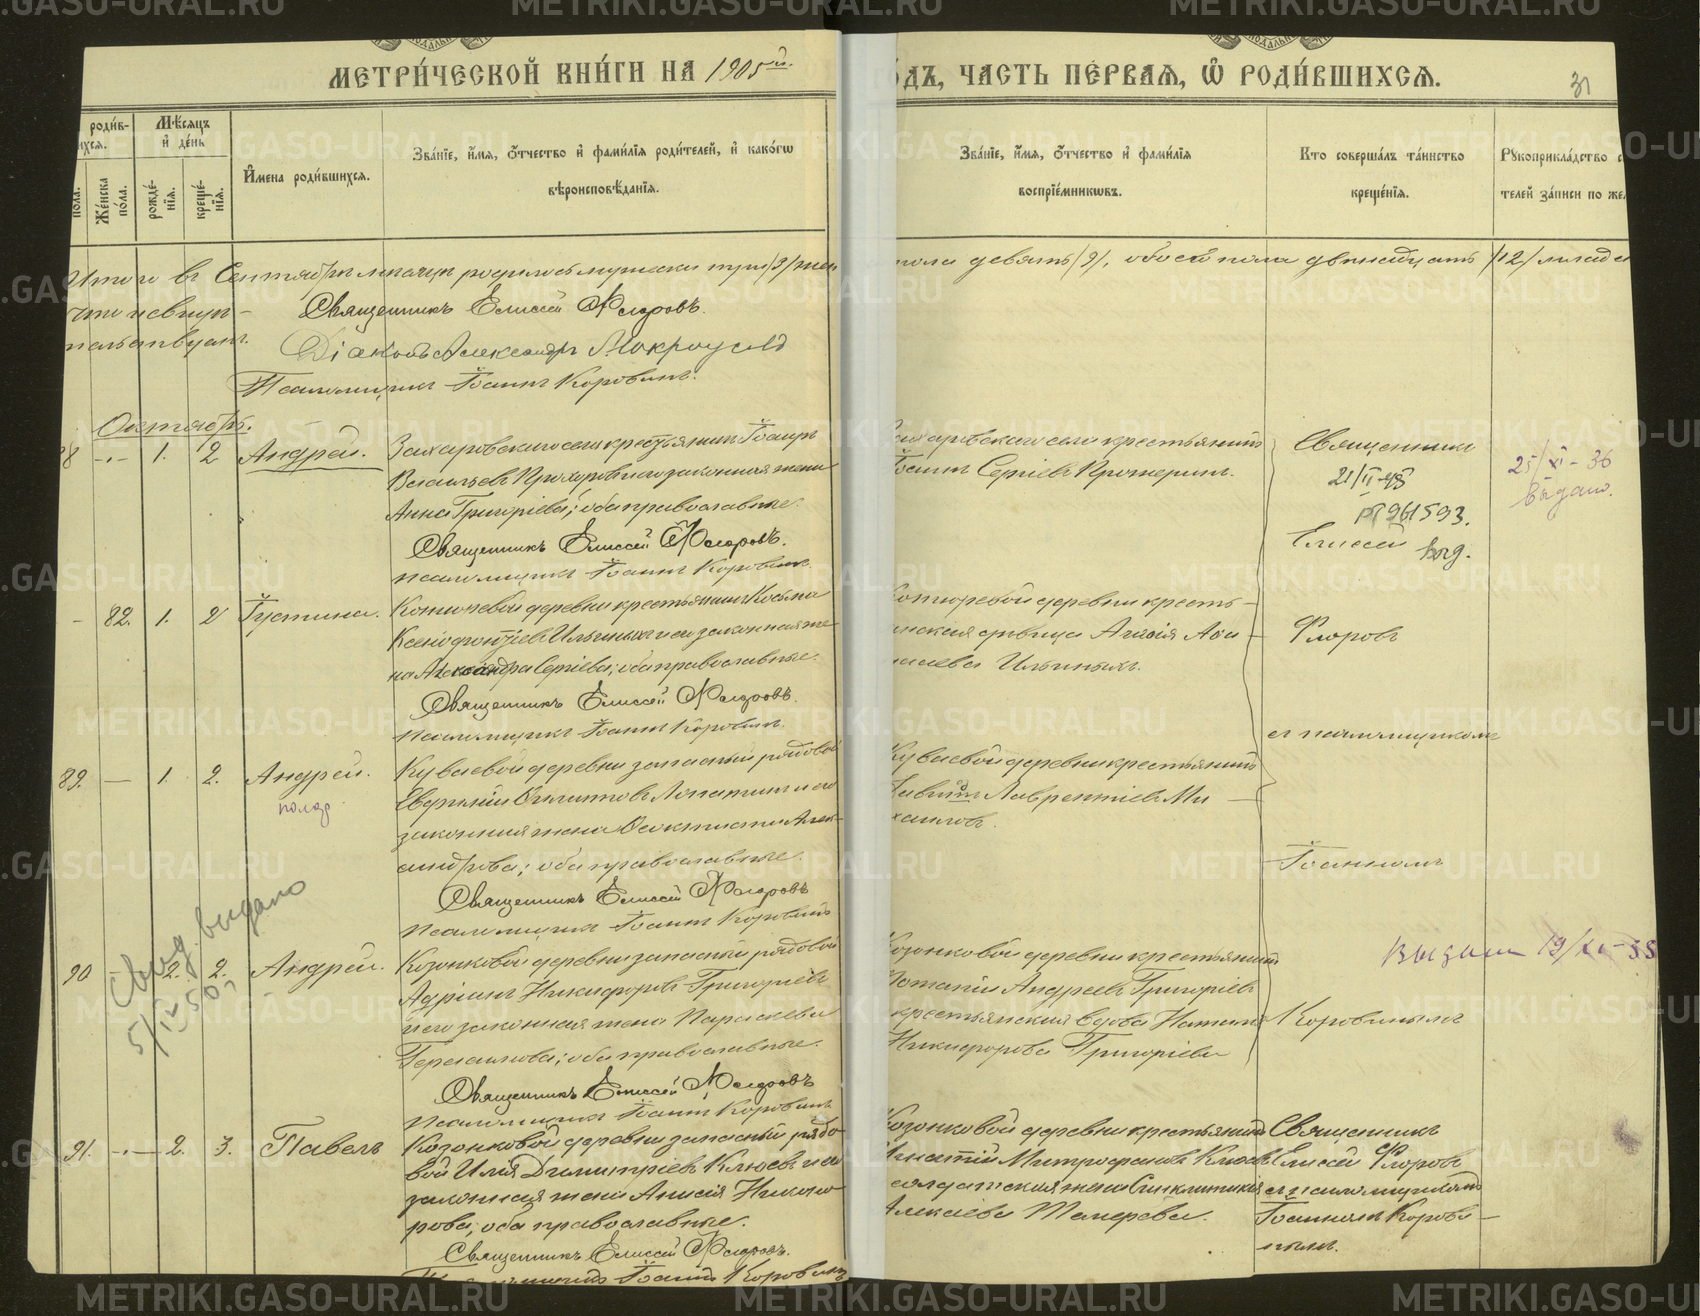 МЕТРИ́ЧЕСКОЙ КНИ́ГИ НА 1905й.
ДЪ, ЧАСТЬ ПЕ́РВАЯ, Ѽ РОДИ́ВШИХСЯ.
31
роди́в-
ихся.
Мѣ́сяцъ
и́ де́нь
пола.
Же́нска
по́ла.
рожде́-
нїя.
креще́-
нїя.
И҆мена роди́вшихся.
Зва́нїе, и҆́мя, ѻ҆́тчество и҆ фами́лїя роди́телей, и҆ како́гѡ
вѣроисповѣ́данїя.
Зва́нїе, и҆́мя, ѻ҆́тчество и҆ фами́лїя
воспрїе́мникѡвъ.
Кто соверша́лъ та́инство
креще́нїя.
Рꙋкоприкла́дство с
телей за́писи по же
Итого въ Сентябрѣ мѣсяцѣ родилось мужеска три /3/ жен
пола девять /9/, обоего пола двѣнадцать /12/ млад
Священникъ Елисей Флоровъ.
Діаконъ Александръ Мокроусов
Псаломщикъ Іоаннъ Коровинъ.
Октябрь.
88 -"- 1. 2 Андрей.
Захаровскаго села крестьянинъ Іоаннъ
Васильевъ Прохоровъ и его законная жена
Анна Григоріева; оба православные.
Священникъ Елисей Флоровъ.
псаломщикъ Іоаннъ Коровинъ.
Захаровскаго села крестьянинъ
Іоаннъ Сергіевъ
Священникъ
21/II-45
961593.
Елисей
выд.
25/XI-36
Выдано.
- 82. 1. 2 Іустина.
деревни крестьянинъ Косьма
Ксенофонтіевъ Ильиныхъ и его законная же
на Александра Сергіева; оба православные.
Священникъ Елисей Флоровъ.
псаломщикъ Іоаннъ Коровинъ.
деревни кресть-
янская дѣвица Агаѳія Аѳа-
насіева Ильиныхъ.
Флоровъ
съ псаломщикомъ
89. - 1. 2. Андрей.
Куваевой деревни запасный рядовой
Евфимій Филипповъ Лопатинъ и его
законная жена Ѳеоктиста Алек-
сандрова; оба православные.
Священникъ Елисей Флоровъ
псаломщикъ Іоаннъ Коровинъ
Куваевой деревни крестьянинъ
Лаврентіевъ Ми-
хаиловъ.
Іоанномъ
Свид. выдано
5/IV 50
90 2. 2. Андрей.
Козонковой деревни запасный рядовой
Адріанъ Никифоровъ Григоріевъ
и его законная жена Параскева
Герасимова; оба православные.
Священникъ Елисей Флоровъ
псаломщикъ Іоаннъ Коровинъ
Козонковой деревни крестьянинъ
Потапій Андреевъ Григоріевъ
крестьянская вдова
Никифорова Григоріева
Коровинымъ
91. -"- 2. 3. Павелъ
Козонковой деревни запасный рядо-
вой Илія Димитріевъ Клюевъ и его
законная жена Анисія Никифо
рова; оба православные.
Священникъ Елисей Флоровъ.
Псаломщикъ Іоаннъ Коровинъ
Козонковой деревни крестьянинъ
Игнатій Митрофановъ Клюевъ
солдатская жена Синклитикія
Алексіева Темерева.
Священникъ
Елисей Флоровъ
съ псаломщикомъ
Іоанномъ Корови-
нымъ.
METRIKI.GASO-URAL.RU